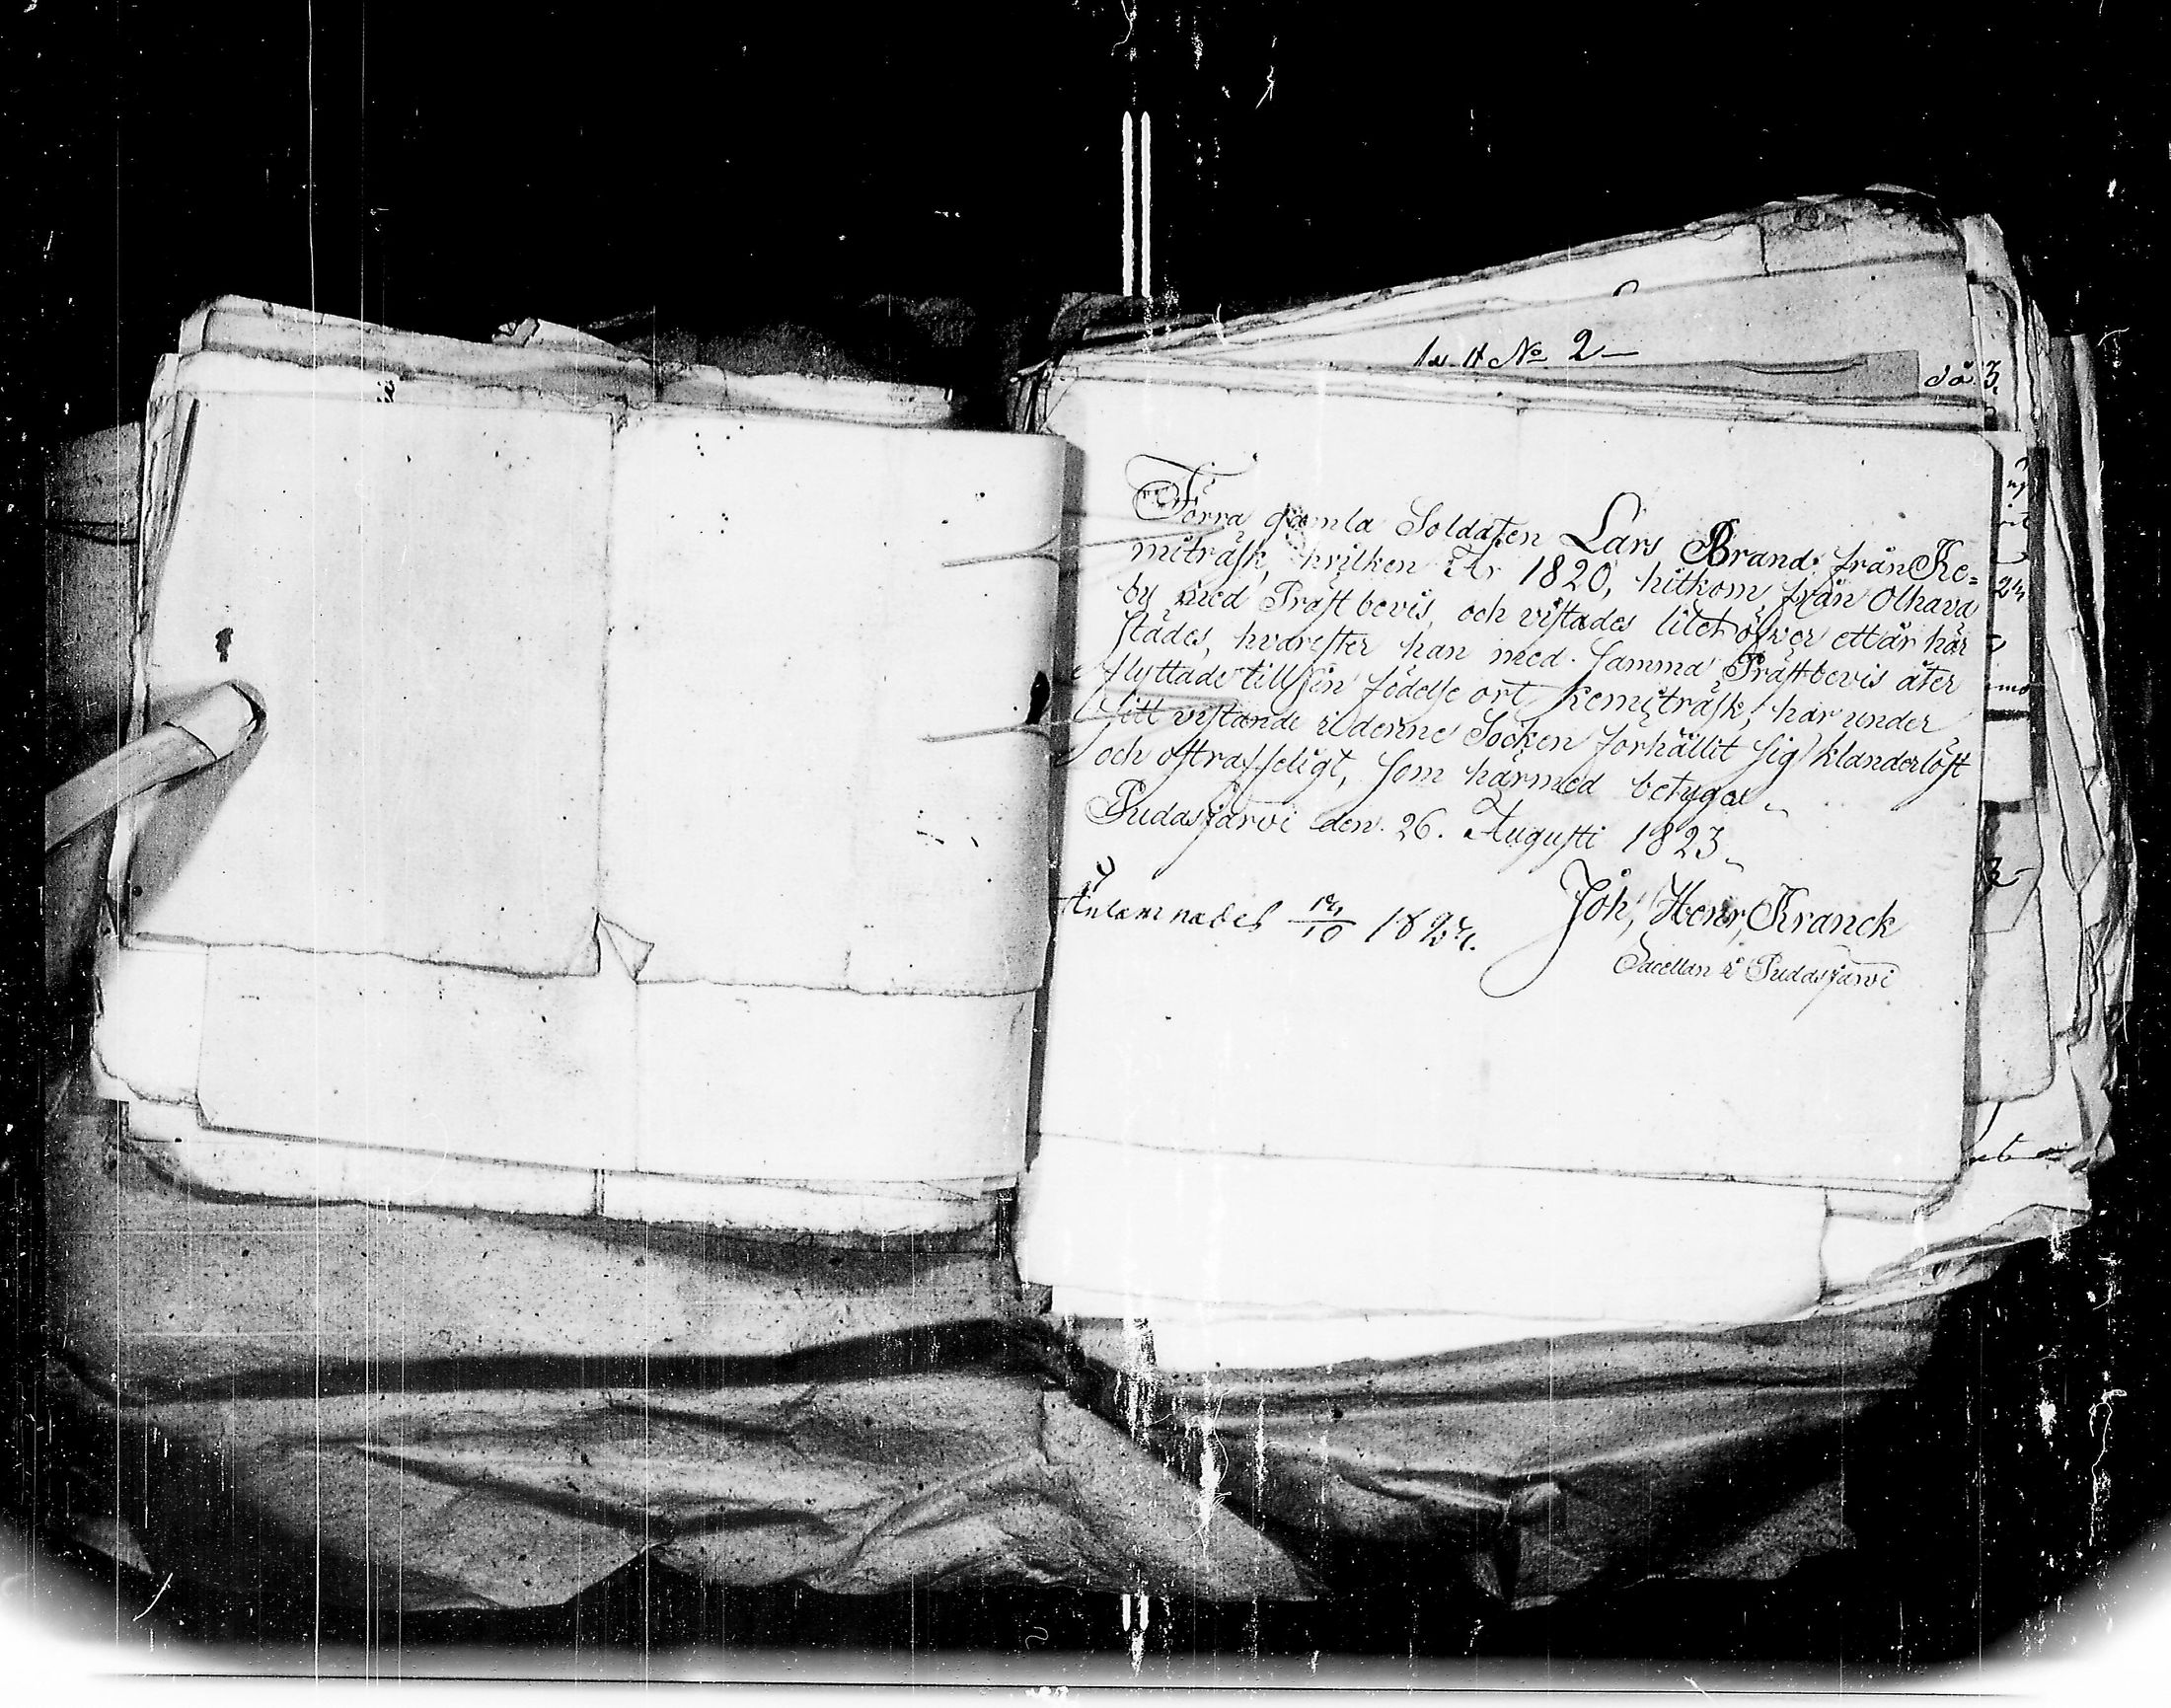 No 2
då 3.
Förra gamla Soldaten Lars Brand från Ke=
miträsk, hvilken År 1820, hitkom från Olhava
by med Prästbevis, och vistades litet öfwer ett år här
städes, hvarefter han med samma Prästbevis åter
flyttade till sin födelse ort Kemiträsk, har under
sitt vistande i denne Socken förhållit sig klanderlöst
och ostraffeligt, som härmed betygas
Pudasjärvi den 26. Augusti 1823
Joh, Henr, Kranck
Sacellan i Pudasjärvi